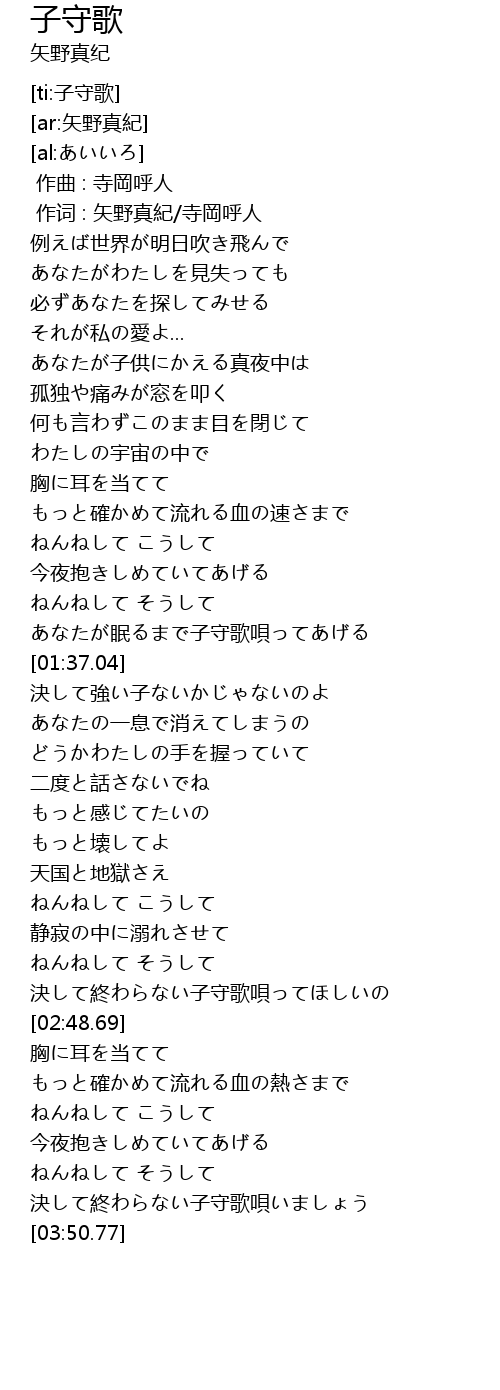 子守歌
矢野真纪
[ti:子守歌]
[ar:矢野真紀]
[al:あいいろ]
作曲 : 寺岡呼人
作词 : 矢野真紀/寺岡呼人
例えば世界が明日吹き飛んで
あなたがわたしを見失っても
必ずあなたを探してみせる
それが私の愛よ…
あなたが子供にかえる真夜中は
孤独や痛みが窓を叩く
何も言わずこのまま目を閉じて
わたしの宇宙の中で
胸に耳を当てて
もっと確かめて流れる血の速さまで
ねんねして こうして
今夜抱きしめていてあげる
ねんねして そうして
あなたが眠るまで子守歌唄ってあげる
[01:37.04]
決して強い子ないかじゃないのよ
あなたの一息で消えてしまうの
どうかわたしの手を握っていて
二度と話さないでね
もっと感じてたいの
もっと壊してよ
天国と地獄さえ
ねんねして こうして
静寂の中に溺れさせて
ねんねして そうして
決して終わらない子守歌唄ってほしいの
[02:48.69]
胸に耳を当てて
もっと確かめて流れる血の熱さまで
ねんねして こうして
今夜抱きしめていてあげる
ねんねして そうして
決して終わらない子守歌唄いましょう
[03:50.77]